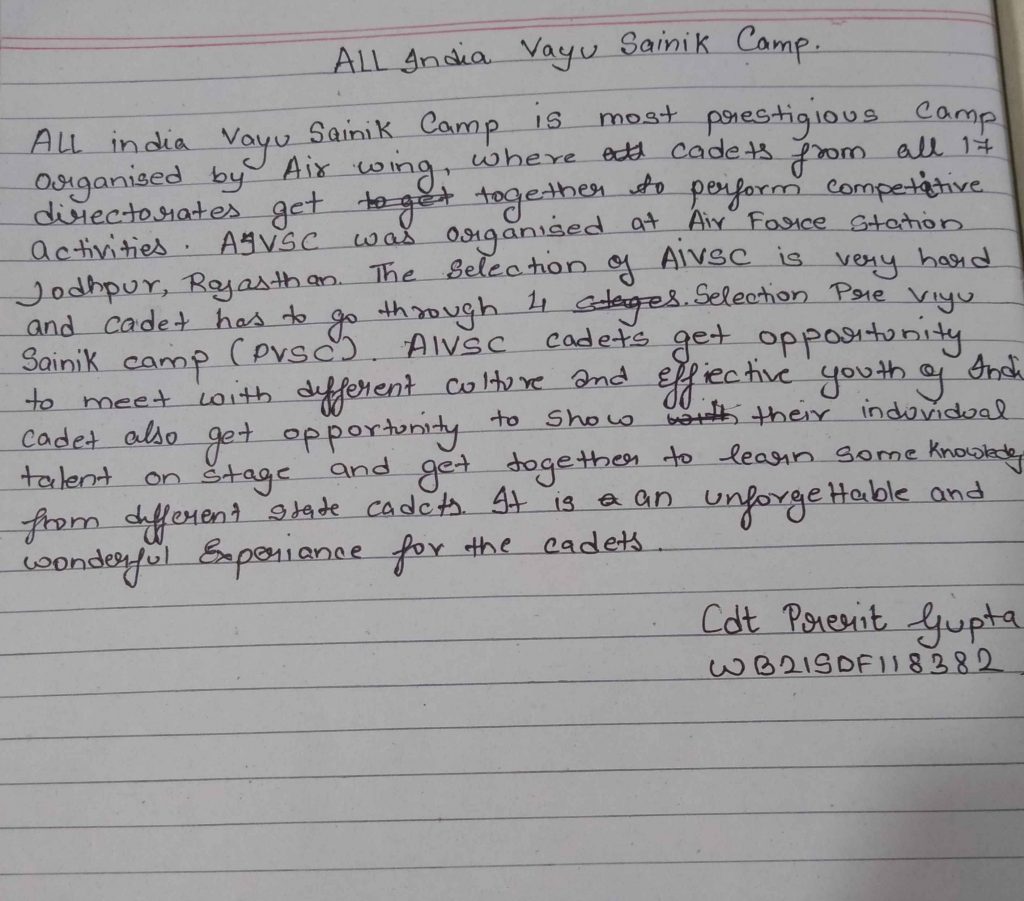 ALL India Vayu Sainik Camp.
ALL india Vayu Sainik Camp is most prestigious Camp
organised by Air wing, where cadets from all 17
directorates get to get together to perform competitive
activities. AIVSC was organised at Air Force Station
Jodhpur, Rajasthan. The Selection of AIVSC is very hard
and cadet has to go through 4 stages. Selection Pre Viyu
Sainik camp (PVSC). AIVSC cadets get opportunity
to meet with different culture and effiective youth of Indi
cadet also get opportunity to show with their indovidual
talent on stage and get together to learn some Knowledg
from different state cadets. It is a an unforgettable and
wonderful Experiance for the cadets.
Cdt Prerit Gupta
WB21SDF118382